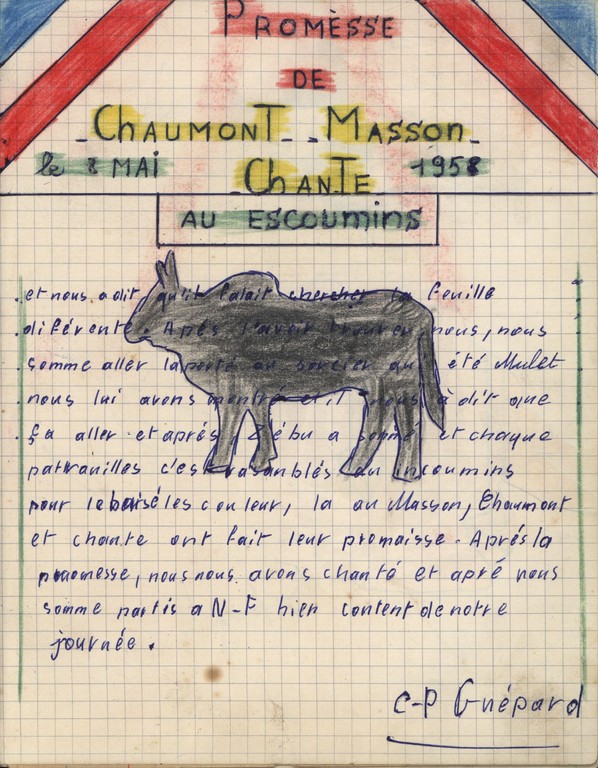 PROMÈSSE
DE
CHAUMONT - MASSON
le 8 MAI CHANTE 1958
AU ESCOUMINS
et nous a dit qu'it falait chercher la feuille
diférente. Aprés l'avoir nous, nous
somme aller la porté au sorcier qui été Mulet
nous lui avons montré et il nous à dit que
ça aller et aprés, Zébu a sonné et chaque
patrrouilles c'est rasanblés au incoumins
pour le baisé les couleur, la au Masson, Chaumont
et chante ont fait leur promaisse. Aprés la
promesse, nous nous avons chanté et apré nous
somme partis a N-F bien content de notre
journée.
C-P Guépard